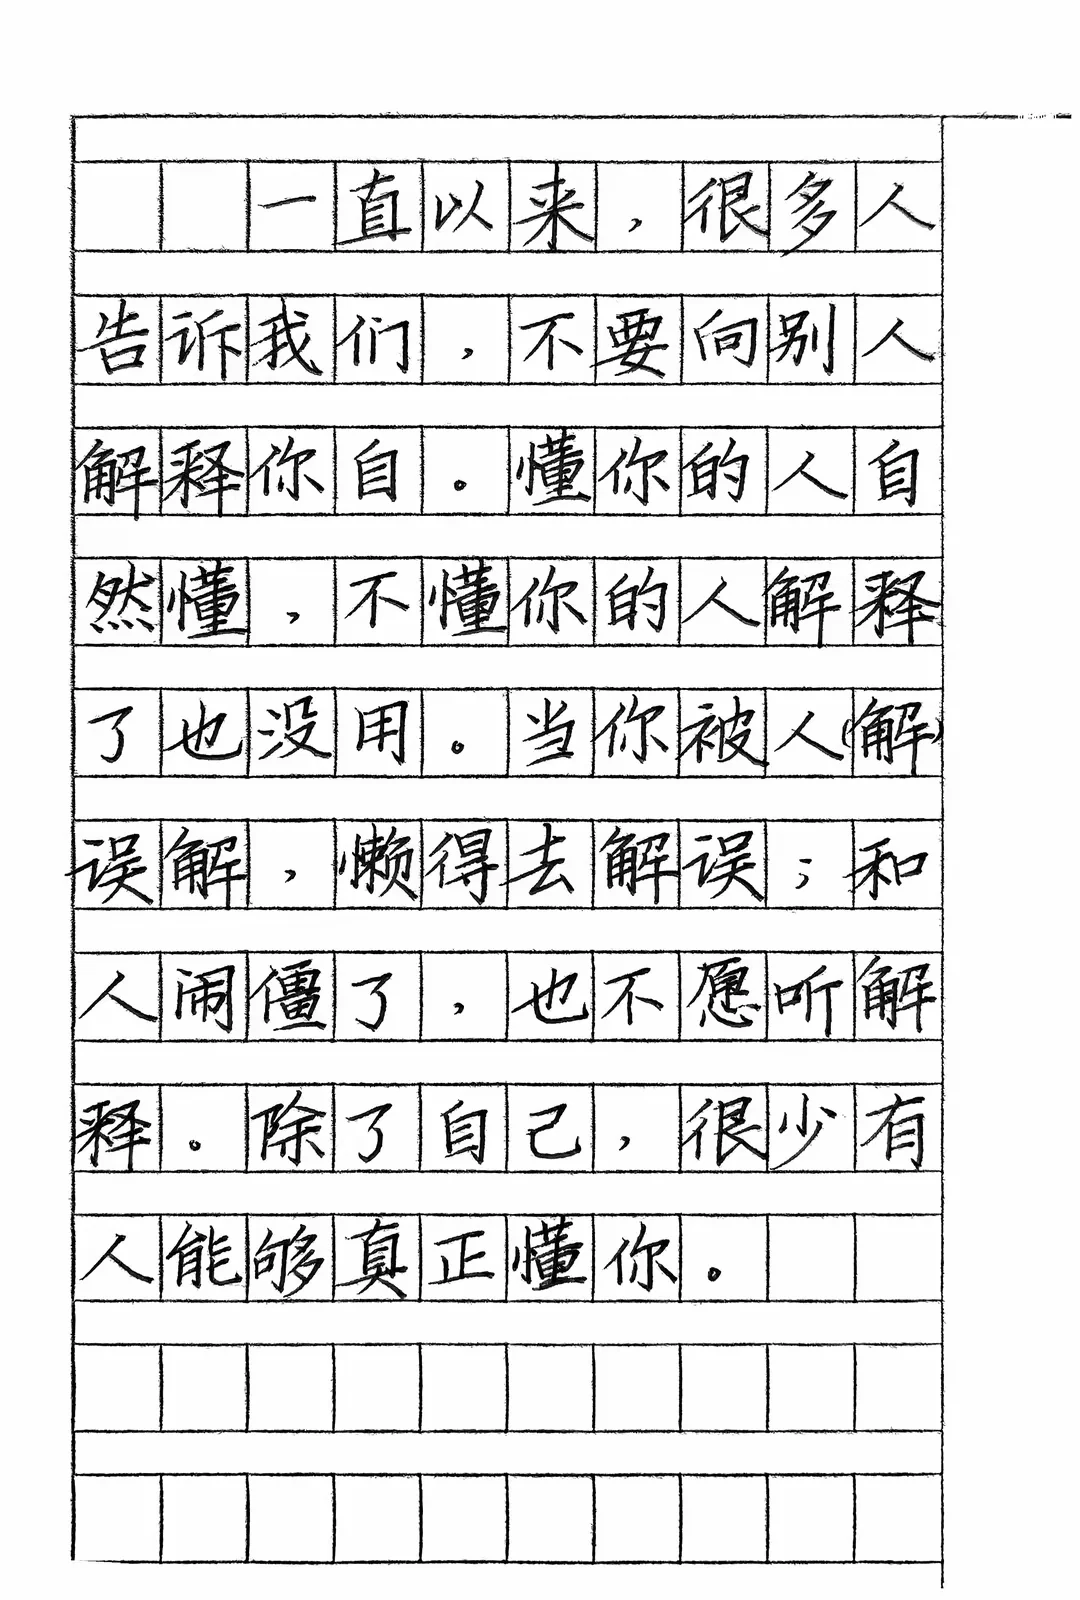 一直以来，很多人
告诉我们，不要向别人
解释你自。懂你的人自
然懂，不懂你的人解释
了也没用。当你被人(解)
误解，懒得去解误；和
人闹僵了，也不愿听解
释。除了自己，很少有
人能够真正懂你。